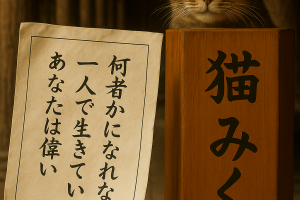 何者かになれな
一人で生きてい
あなたは偉い
猫みく